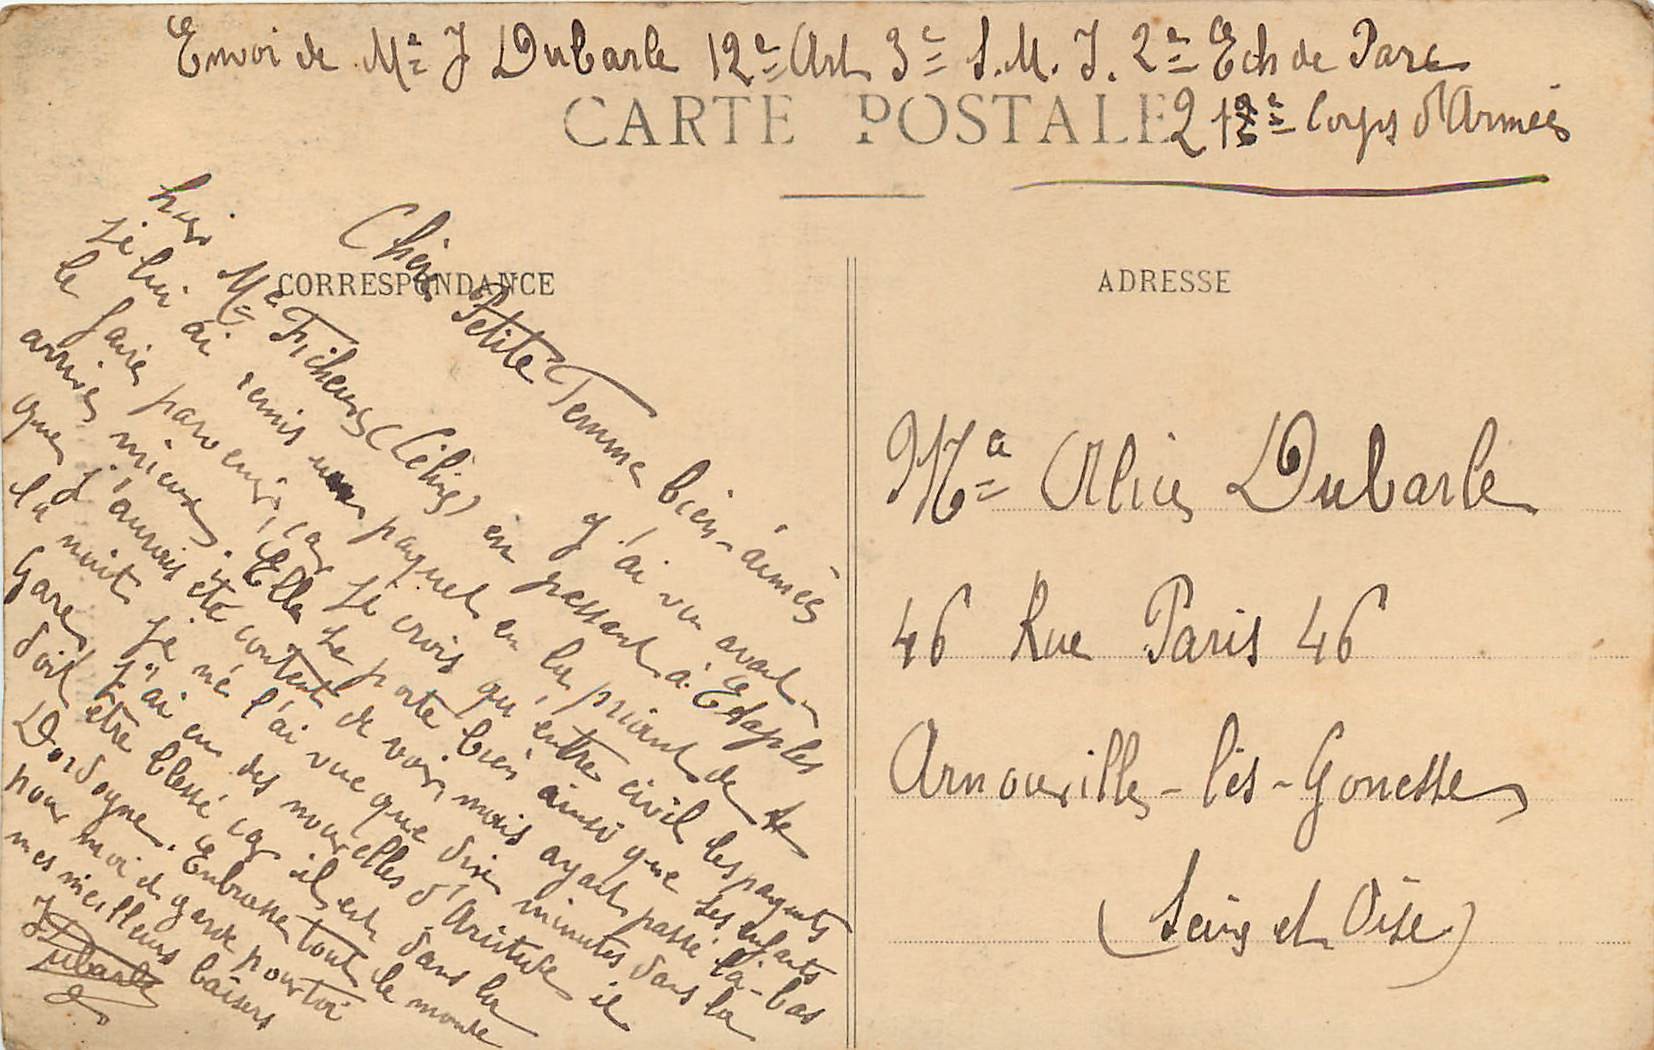 Envoi de Mr J Dubarle 12e Art 3e S.M.I. 2e Ech de Parc
21e Corps d'Armée
CARTE POSTALE
CORRESPONDANCE
Chère Petite Femme bien-aimée
J'ai vu avant
hier Me Ficheux (Céline) en passant à Etaples
je lui ai remis un paquet en la priant de te
le faire parvenir, car je crois qu'entre civil les paquets
arrives mieux. Elle se porte bien ainsi que ses enfants
que j'aurais été content de voir, mais ayant passé là-bas
la nuit je ne l'ai vue que dix minutes dans la
Gare, j'ai eu des nouvelles d'Aristide il
doit être blessé car il est dans la
Dordogne. Embrasse tout le monde
pour moi et garde pour toi
mes meilleurs baisers
J Dubarle
ADRESSE
Me Alice Dubarle
46 Rue Paris 46
Arnouville-lès-Gonesse
(Seine et Oise)